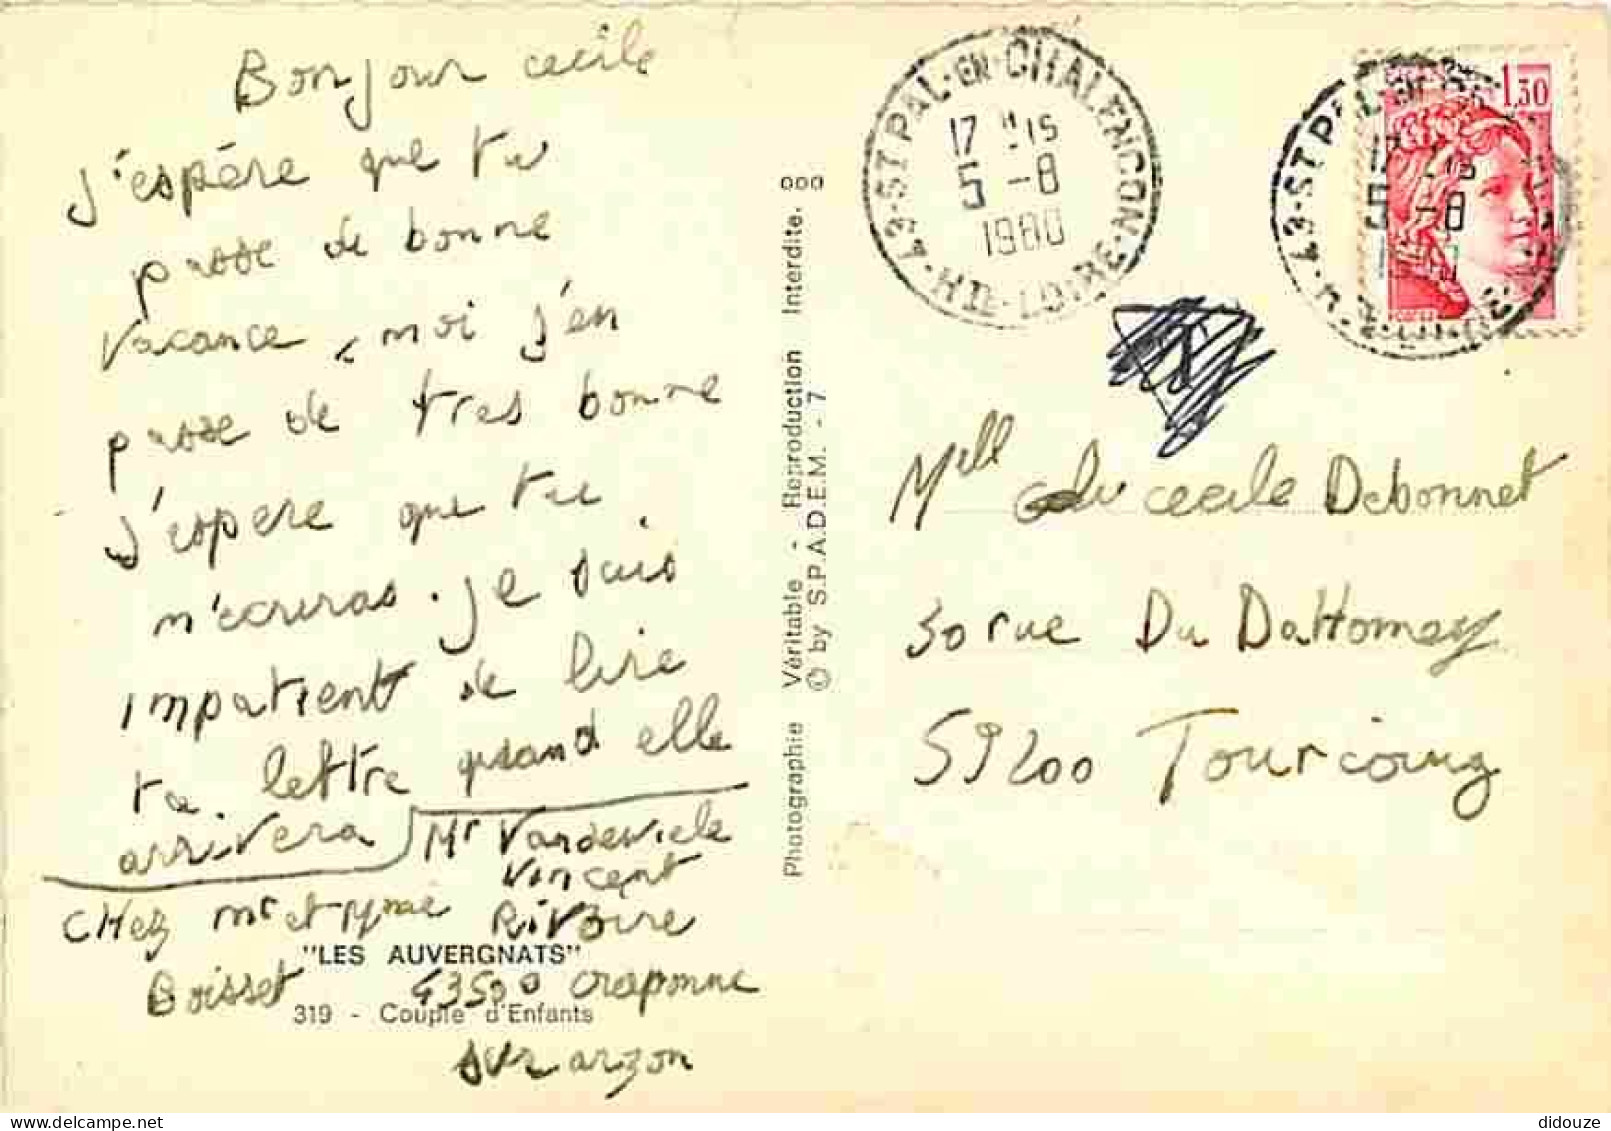 Bonjour cecile
j'espère que tu
passe de bonne
vacance, moi j'en
passe de tres bonne
j'espere que tu
m'ecriras. je suis
impatient de lire
ta lettre quand elle
arrivera
Mr Vandewiele
Vincent
CHez mr et Mme Rivoire
"LES AUVERGNATS"
Boisset 43500 craponne
319 - Couple d'Enfants
sur arzon
Photographie Véritable - Reproduction Interdite. 000
© by S.P.A.D.E.M. - 7
43-ST PAL-EN-CHALENCON
HTE-LOIRE
17 H 15
5 -8
1980
1,30
43-ST PAL-EN
5 -8
Mell cecile Debonnet
30 rue Du DaHomey
59200 Tourcoing
didouze